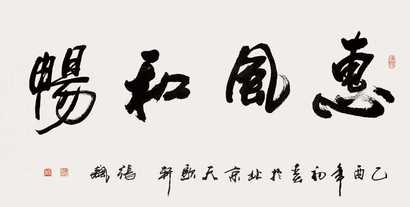 惠風和暢
乙酉年初春於北京天歌軒 楊